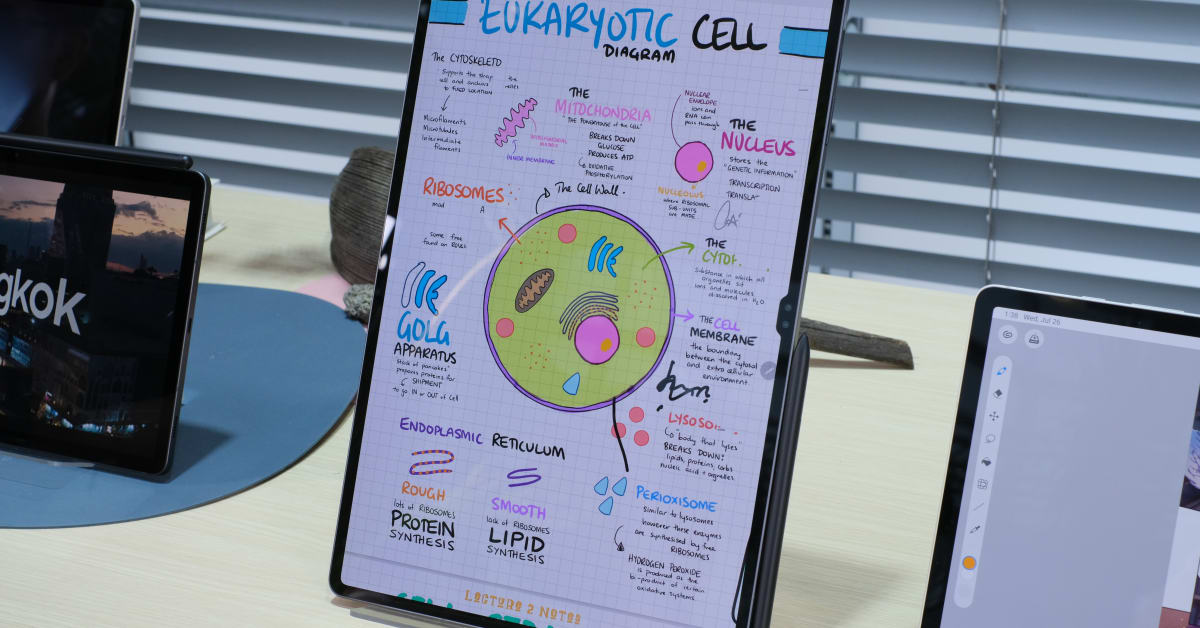 EUKARYOTIC CELL
DIAGRAM
The CYTOSKELETO
Supports the
cell and anchors
to FIXED LOCATION
Microfilaments
Microtubules
Intermediate
filaments
THE
MITOCHONDRIA
"THE POWERHOUSE of the CELL"
INNER MEMBRANE
BREAKS DOWN
GLUCOSE
PRODUCES ATP
OXIDATIVE
PHOSPHORYLATION
NUCLEAR
ENVELOPE
ions and
RNA can
pass through
THE
NUCLEUS
stores the
"GENETIC INFORMATION"
TRANSCRIPTION
TRANSLAT
NUCLEOLUS
where RIBOSOMAL
SUB-UNITS
are MADE
RIBOSOMES
mad A
some free
found on
The Cell Wall.
THE
CYTO
Substance in which all
organelles sit
ions and molecules
dissolved in H₂O
GOLG
APPARATUS
"stack of pancakes"
prepares proteins for
SHIPMENT
to go IN or OUT of Cell
THE CELL
MEMBRANE
the boundary
between the cytosol
and extracellular
environment.
LYSOSO
"body that lyses"
BREAKS DOWN:
lipids, proteins, carbs
nucleic acid + organelles
ENDOPLASMIC RETICULUM
ROUGH
lots of RIBOSOMES
PROTEIN
SYNTHESIS
SMOOTH
lack of RIBOSOMES
LIPID
SYNTHESIS
PERIOXISOME
similar to lysosomes
however these enzymes
are synthesised by free
RIBOSOMES
HYDROGEN PEROXIDE
is produced as the
bi-product of certain
oxidative systems.
LECTURE 2 NOTES
gkok
1:38 Wed, Jul 26